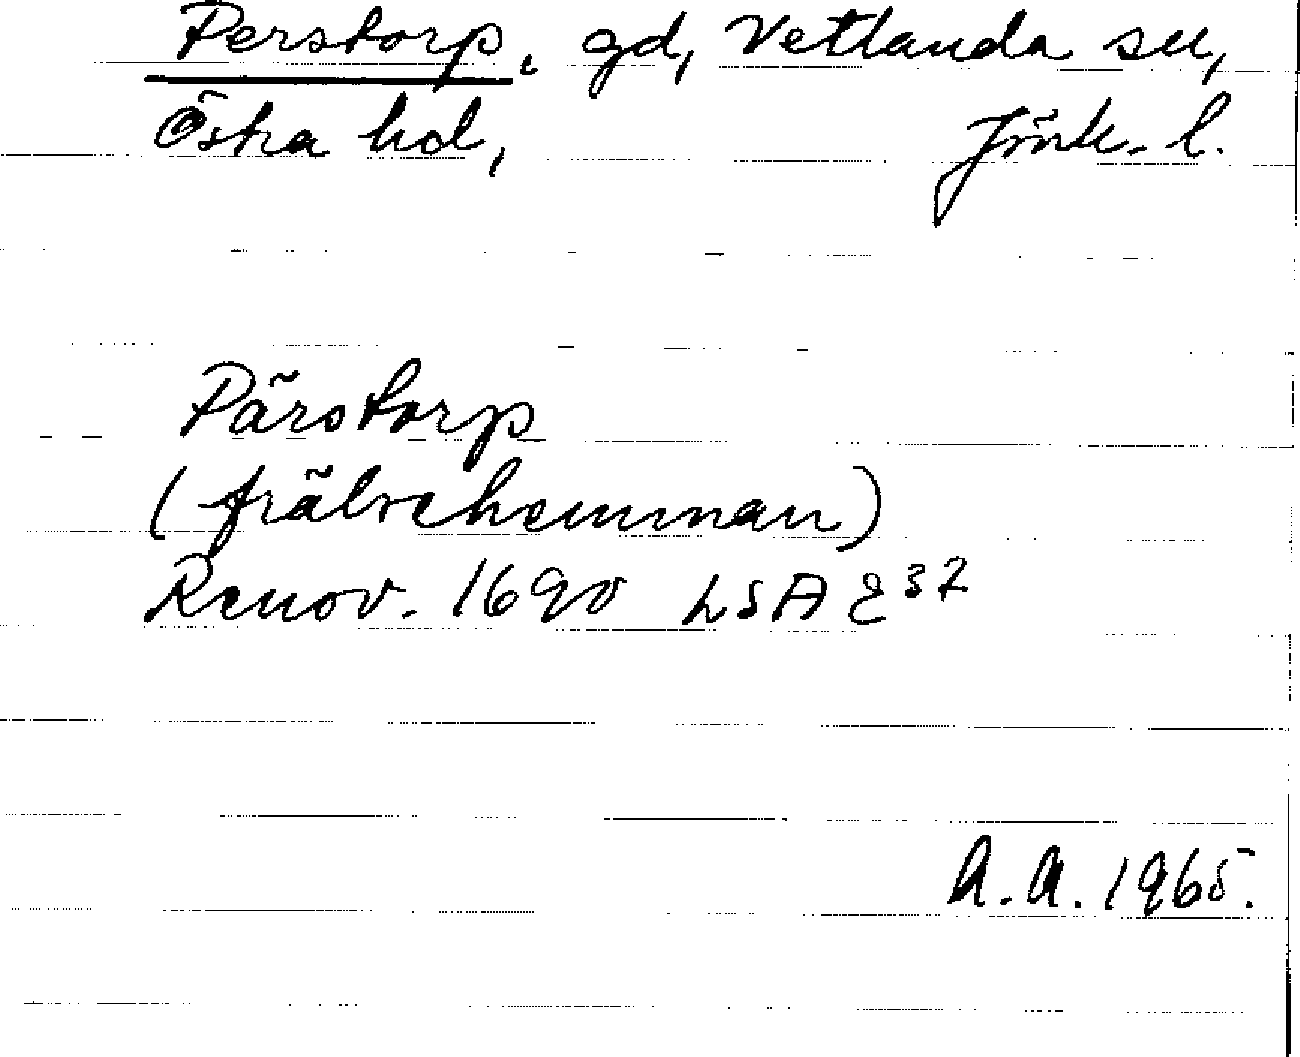 Perstorp, gd, Vetlanda sn,
Östra hd, Jönk. l.
Pärstorp
(frälsehemman)
Renov. 1690 LSA E 37
A.A. 1965.